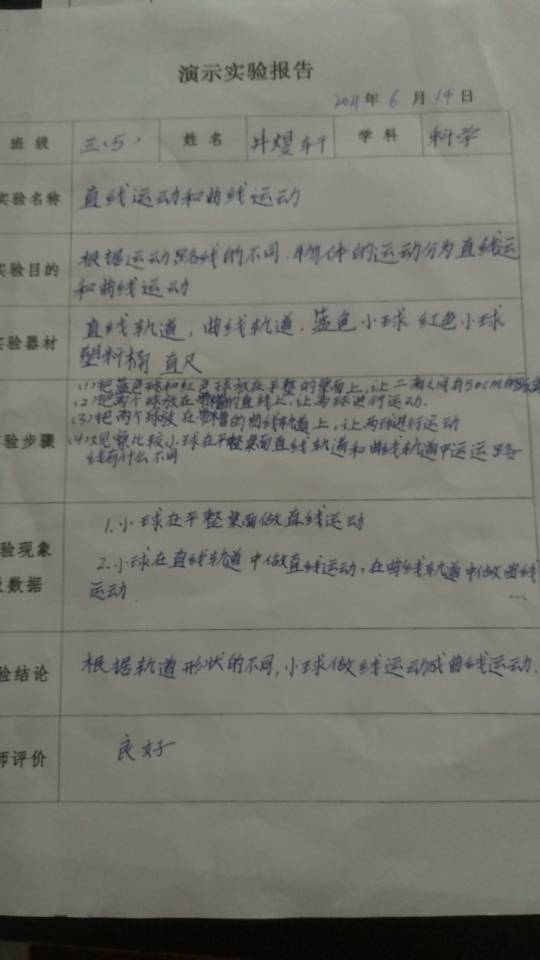 演示实验报告
2021年 6 月 14 日
班级 三(5) 姓名 井煜轩 学科 科学
实验名称 直线运动和曲线运动
实验目的 根据运动路线的不同,物体的运动分为直线运
和曲线运动
实验器材 直线轨道,曲线轨道,蓝色小球 红色小球
塑料桶 直尺
(1)把蓝色球和红色球放在平整的桌面上,让二者之间有50cm的
(2)把两个球放在 的直线上,让两球进行运动.
(3)把两个球放在 的曲线轨道上,让两球进行运动
验步骤 (4)观察比较小球在平整桌面直线轨道和曲线轨道中运运路
线有什么不同
1.小球在平整桌面做直线运动
验现象 2.小球在直线轨道中做直线运动,在曲线轨道中做曲线
数据 运动
验结论 根据轨道形状的不同,小球做线运动或曲线运动.
师评价 良好